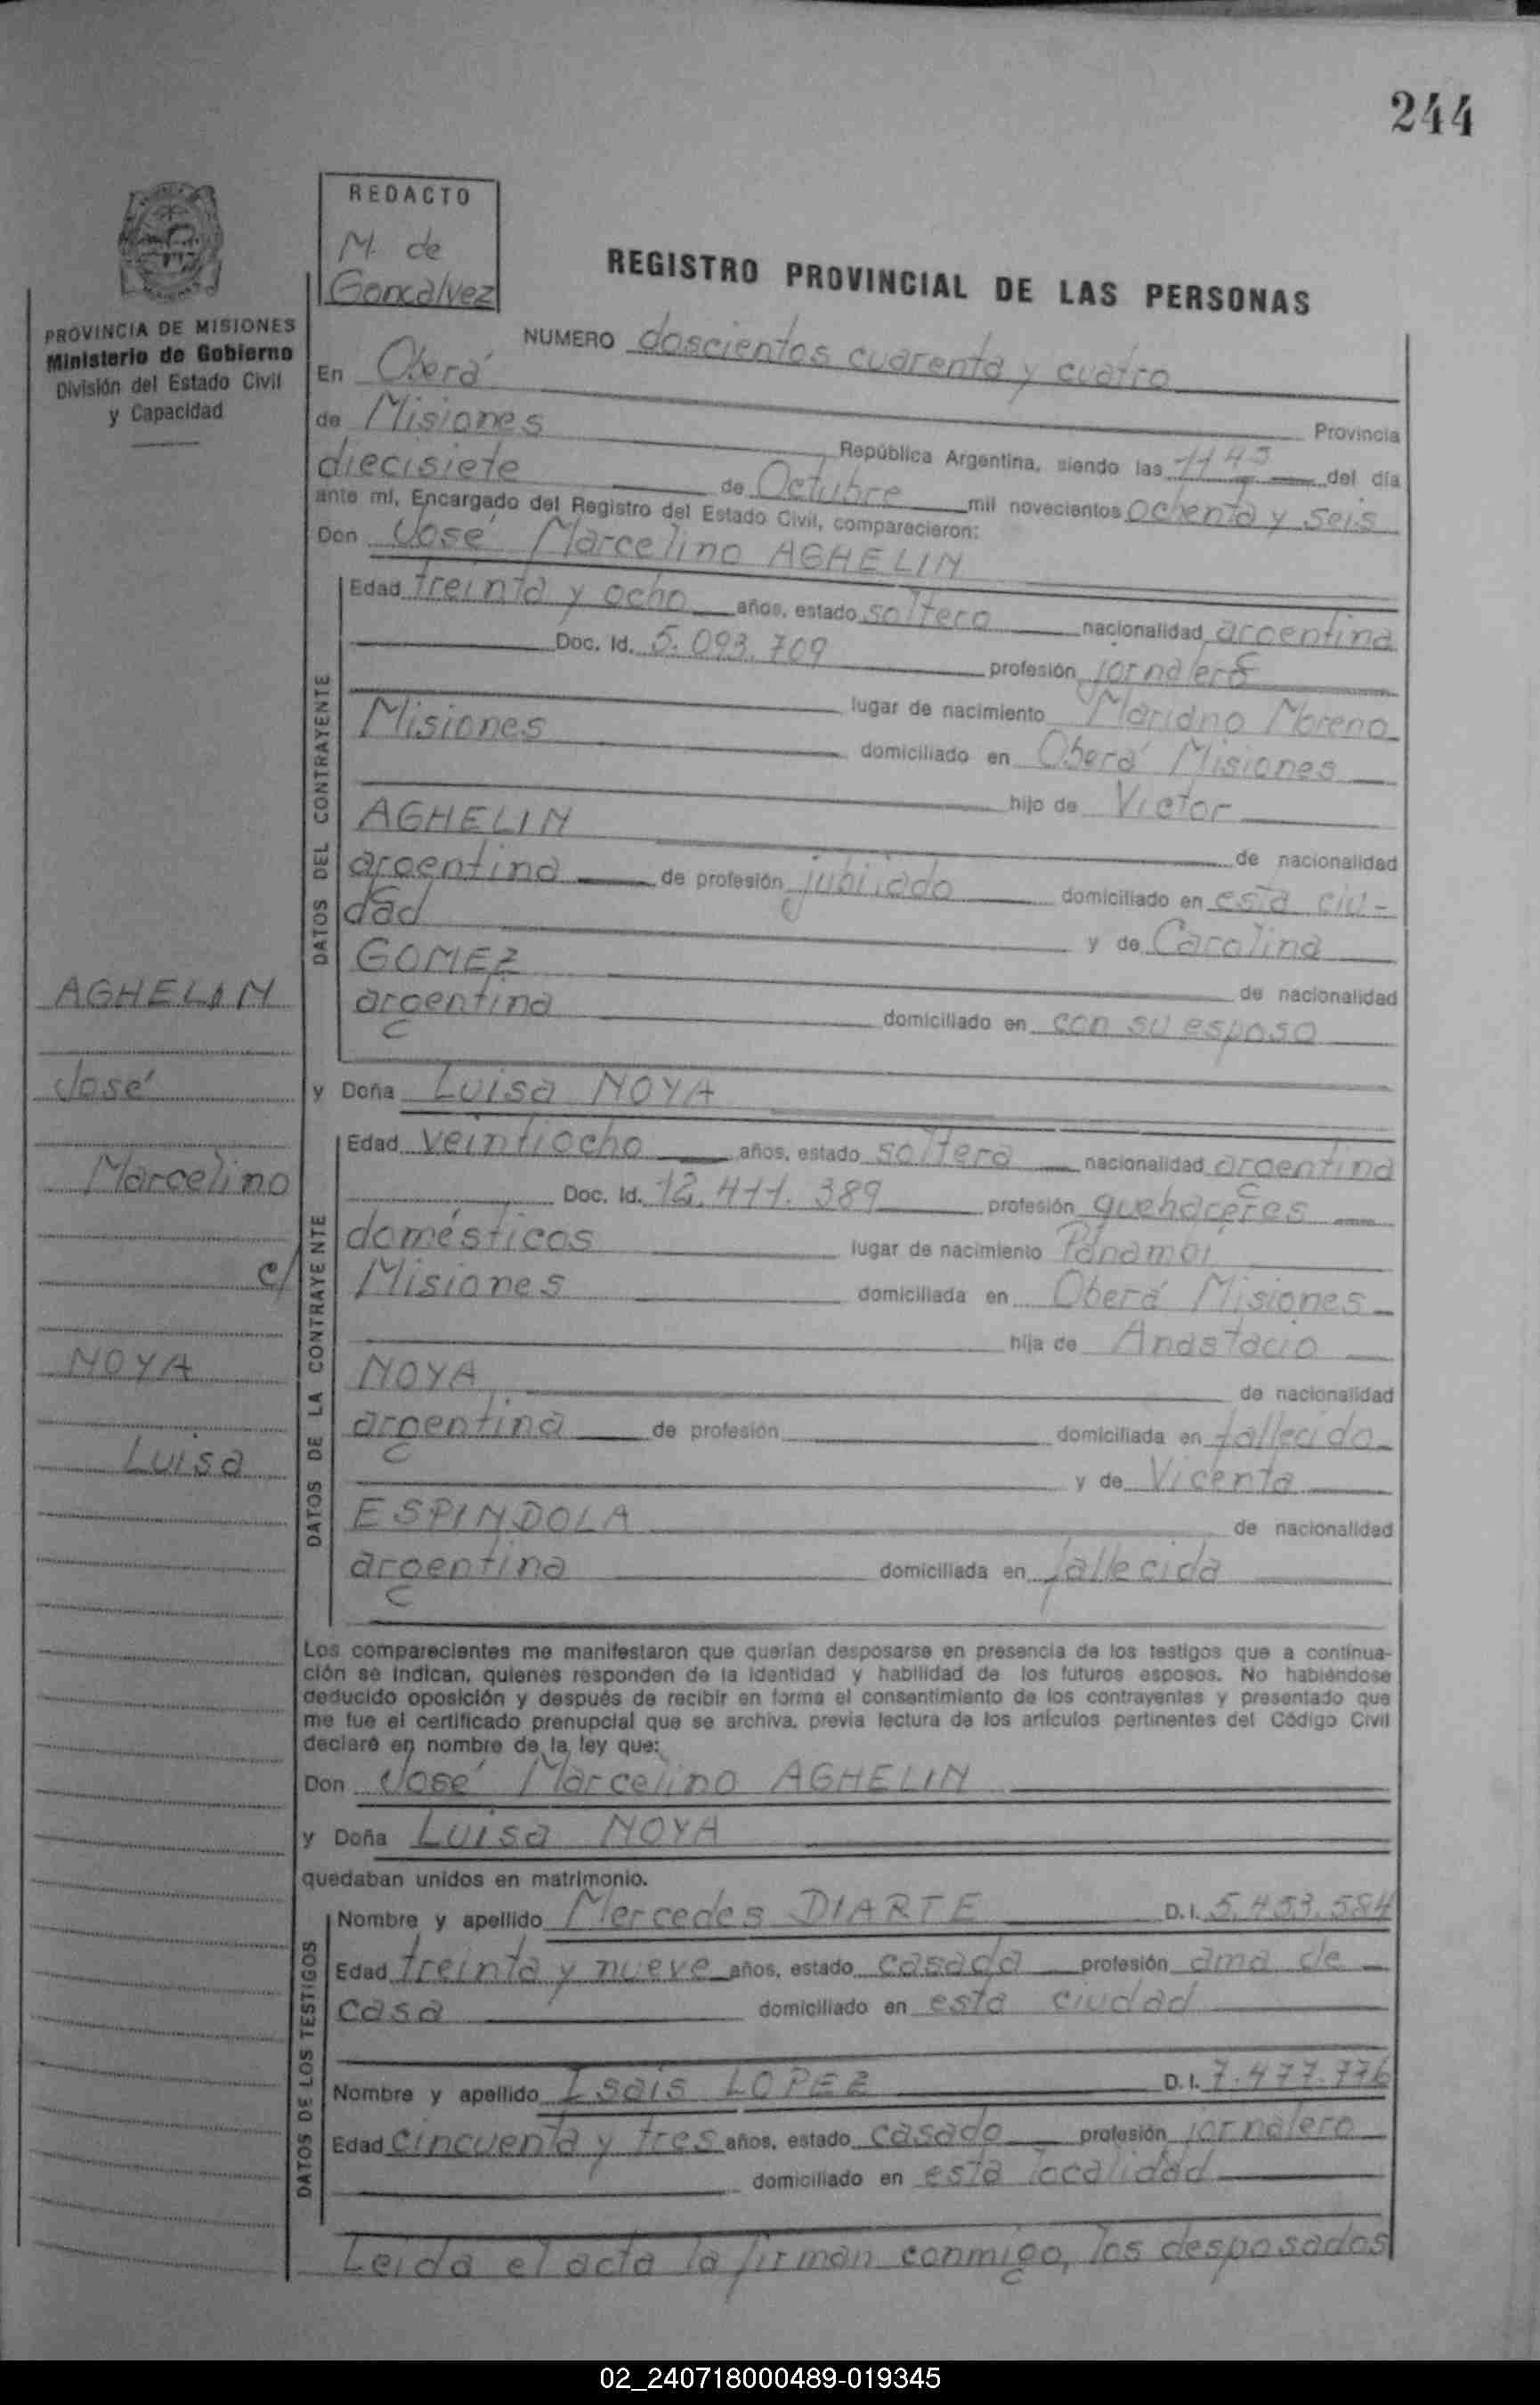 244
REDACTO
M. de
Goncalvez
REGISTRO PROVINCIAL DE LAS PERSONAS
PROVINCIA DE MISIONES
Ministerio de Gobierno
División del Estado Civil
y Capacidad
NUMERO doscientos cuarenta y cuatro
En Oberá Provincia
de Misiones República Argentina, siendo las 1145 del día
diecisiete de Octubre mil novecientos ochenta y seis
ante mí, Encargado del Registro del Estado Civil, comparecieron:
Don José Marcelino AGHELIN
DATOS DEL CONTRAYENTE
Edad treinta y ocho años, estado soltero nacionalidad argentina
Doc. Id. 5.093.709 profesión jornalero
lugar de nacimiento Mariano Moreno
Misiones domiciliado en Oberá Misiones
hijo de Victor
AGHELIN de nacionalidad
argentina de profesión jubilado domiciliado en esta ciu-
dad y de Carolina
GOMEZ de nacionalidad
argentina domiciliado en con su esposo
y Doña Luisa NOYA
DATOS DE LA CONTRAYENTE
Edad veintiocho años, estado soltera nacionalidad argentina
Doc. Id. 12.411.389 profesión quehaceres
domésticos lugar de nacimiento Panambí
Misiones domiciliada en Oberá Misiones
hija de Anastacio
NOYA de nacionalidad
argentina de profesión domiciliada en fallecido
y de Vicenta
ESPINDOLA de nacionalidad
argentina domiciliada en fallecida
AGHELIN
José
Marcelino
c/
NOYA
Luisa
Los comparecientes me manifestaron que querían desposarse en presencia de los testigos que a continua-
ción se indican, quienes responden de la identidad y habilidad de los futuros esposos. No habiéndose
deducido oposición y después de recibir en forma el consentimiento de los contrayentes y presentado que
me fue el certificado prenupcial que se archiva, previa lectura de los artículos pertinentes del Código Civil
declaré en nombre de la ley que:
Don José Marcelino AGHELIN
y Doña Luisa NOYA
quedaban unidos en matrimonio.
DATOS DE LOS TESTIGOS
Nombre y apellido Mercedes DIARTE D.I. 5.453.584
Edad treinta y nueve años, estado casada profesión ama de
casa domiciliado en esta ciudad
Nombre y apellido Isais LOPEZ D.I. 7.477.776
Edad cincuenta y tres años, estado casado profesión jornalero
domiciliado en esta localidad
Leida el acta la firman conmigo, los desposados
02_240718000489-019345